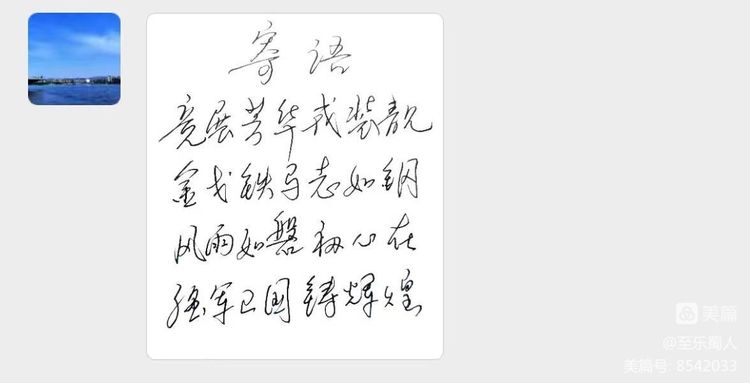 寄语
竞展芳华戎装靓
金戈铁马志如钢
风雨如磐初心在
强军卫国铸辉煌
美篇
@至乐闽人
美篇号: 8542033